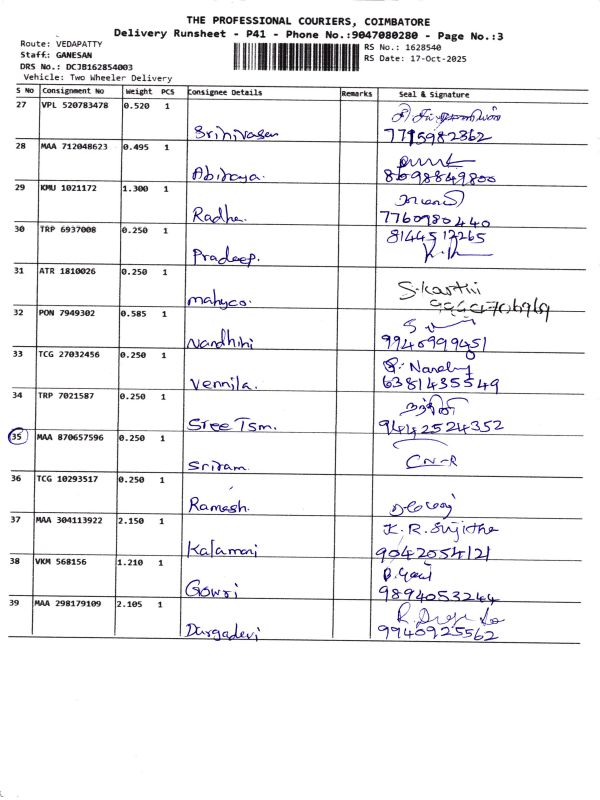 THE PROFESSIONAL COURIERS, COIMBATORE
Delivery Runsheet - P41 - Phone No.:9047080280 - Page No.:3
Route: VEDAPATTY
Staff: GANESAN
DRS No.: DCJB162854003
Vehicle: Two Wheeler Delivery
RS No.: 1628540
RS Date: 17-Oct-2025
S No Consignment No Weight PCS Consignee Details Remarks Seal & Signature
27 VPL 520783478 0.520 1
Srinivasan 7715982362
28 MAA 712048623 0.495 1
Abiraya. 8698849800
29 KMU 1021172 1.300 1
Radha. 7760980440
30 TRP 6937008 0.250 1 8144517265
Pradeep.
31 ATR 1810026 0.250 1 S.Karthi
mahyco.
32 PON 7949302 0.585 1
Nandhini 9940999451
33 TCG 27032456 0.250 1
Vennila. 6381435549
34 TRP 7021587 0.250 1 நந்தினி
Sree Tsm. 9442524352
35 MAA 870657596 0.250 1
Sriram. CN-R
36 TCG 10293517 0.250 1
Ramesh.
37 MAA 304113922 2.150 1 K.R.Sujitha
Kalamani 9042054121
38 VKM 568156 1.210 1
Gowri 9894053244
39 MAA 298179109 2.105 1
Durgadevi 9940925562